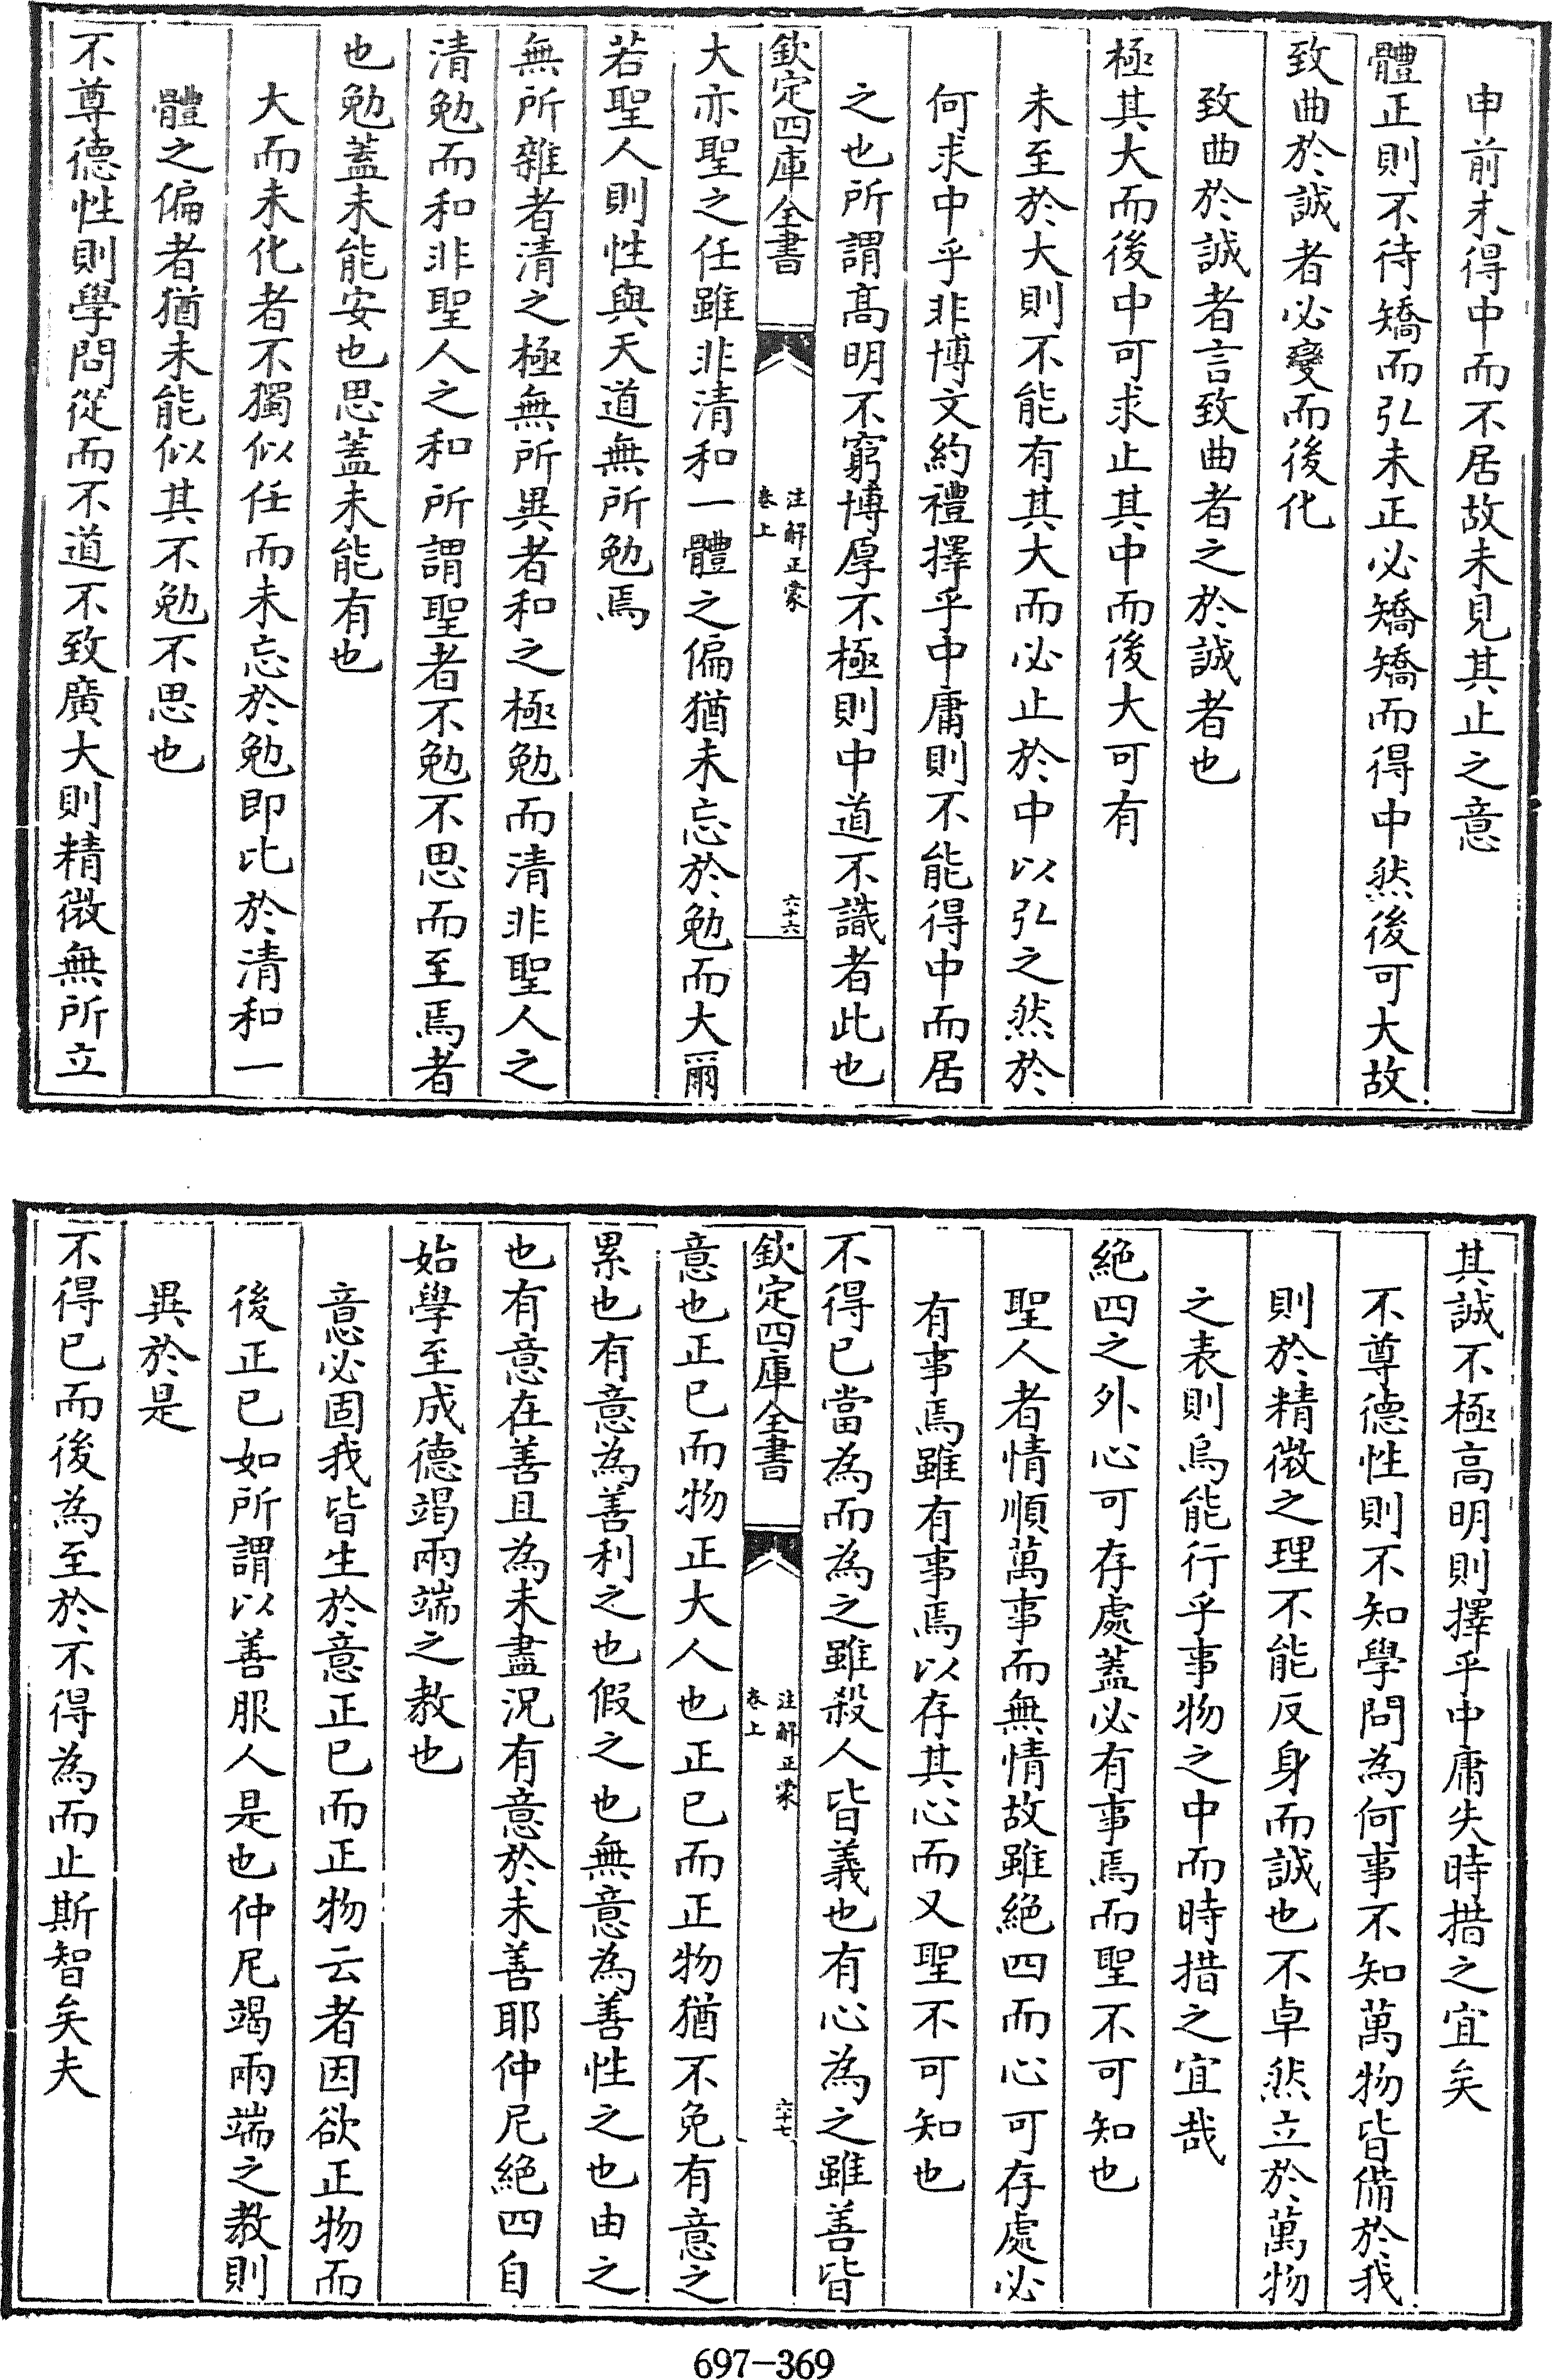 申前未得中而不居故未見其止之意
體正則不待矯而弘未正必矯矯而得中然後可大故
致曲於誠者必變而後化
致曲於誠者言致曲者之於誠者也
極其大而後中可求止其中而後大可有
未至於大則不能有其大而必止於中以弘之然於
何求中乎非博文約禮擇乎中庸則不能得中而居
之也所謂髙明不窮博厚不極則中道不識者此也
欽定四庫全書
注解正蒙
卷上
六十六
大亦聖之任雖非清和一體之偏猶未忘於勉而大爾
若聖人則性與天道無所勉焉
無所雜者清之極無所異者和之極勉而清非聖人之
清勉而和非聖人之和所謂聖者不勉不思而至焉者
也勉蓋未能安也思蓋未能有也
大而未化者不獨似任而未忘於勉即比於清和一
體之偏者猶未能似其不勉不思也
不尊德性則學問從而不道不致廣大則精微無所立
其誠不極高明則擇乎中庸失時措之宜矣
不尊德性則不知學問為何事不知萬物皆備於我
則於精微之理不能反身而誠也不卓然立於萬物
之表則烏能行乎事物之中而時措之宜哉
絕四之外心可存處蓋必有事焉而聖不可知也
聖人者情順萬事而無情故雖絕四而心可存處必
有事焉雖有事焉以存其心而又聖不可知也
不得已當為而為之雖殺人皆義也有心為之雖善皆
欽定四庫全書
注解正蒙
卷上
六十七
意也正已而物正大人也正已而正物猶不免有意之
累也有意為善利之也假之也無意為善性之也由之
也有意在善且為未盡況有意於未善耶仲尼絕四自
始學至成德竭兩端之教也
意必固我皆生於意正已而正物云者因欲正物而
後正已如所謂以善服人是也仲尼竭兩端之教則
異於是
不得已而後為至於不得為而止斯智矣夫
697-369